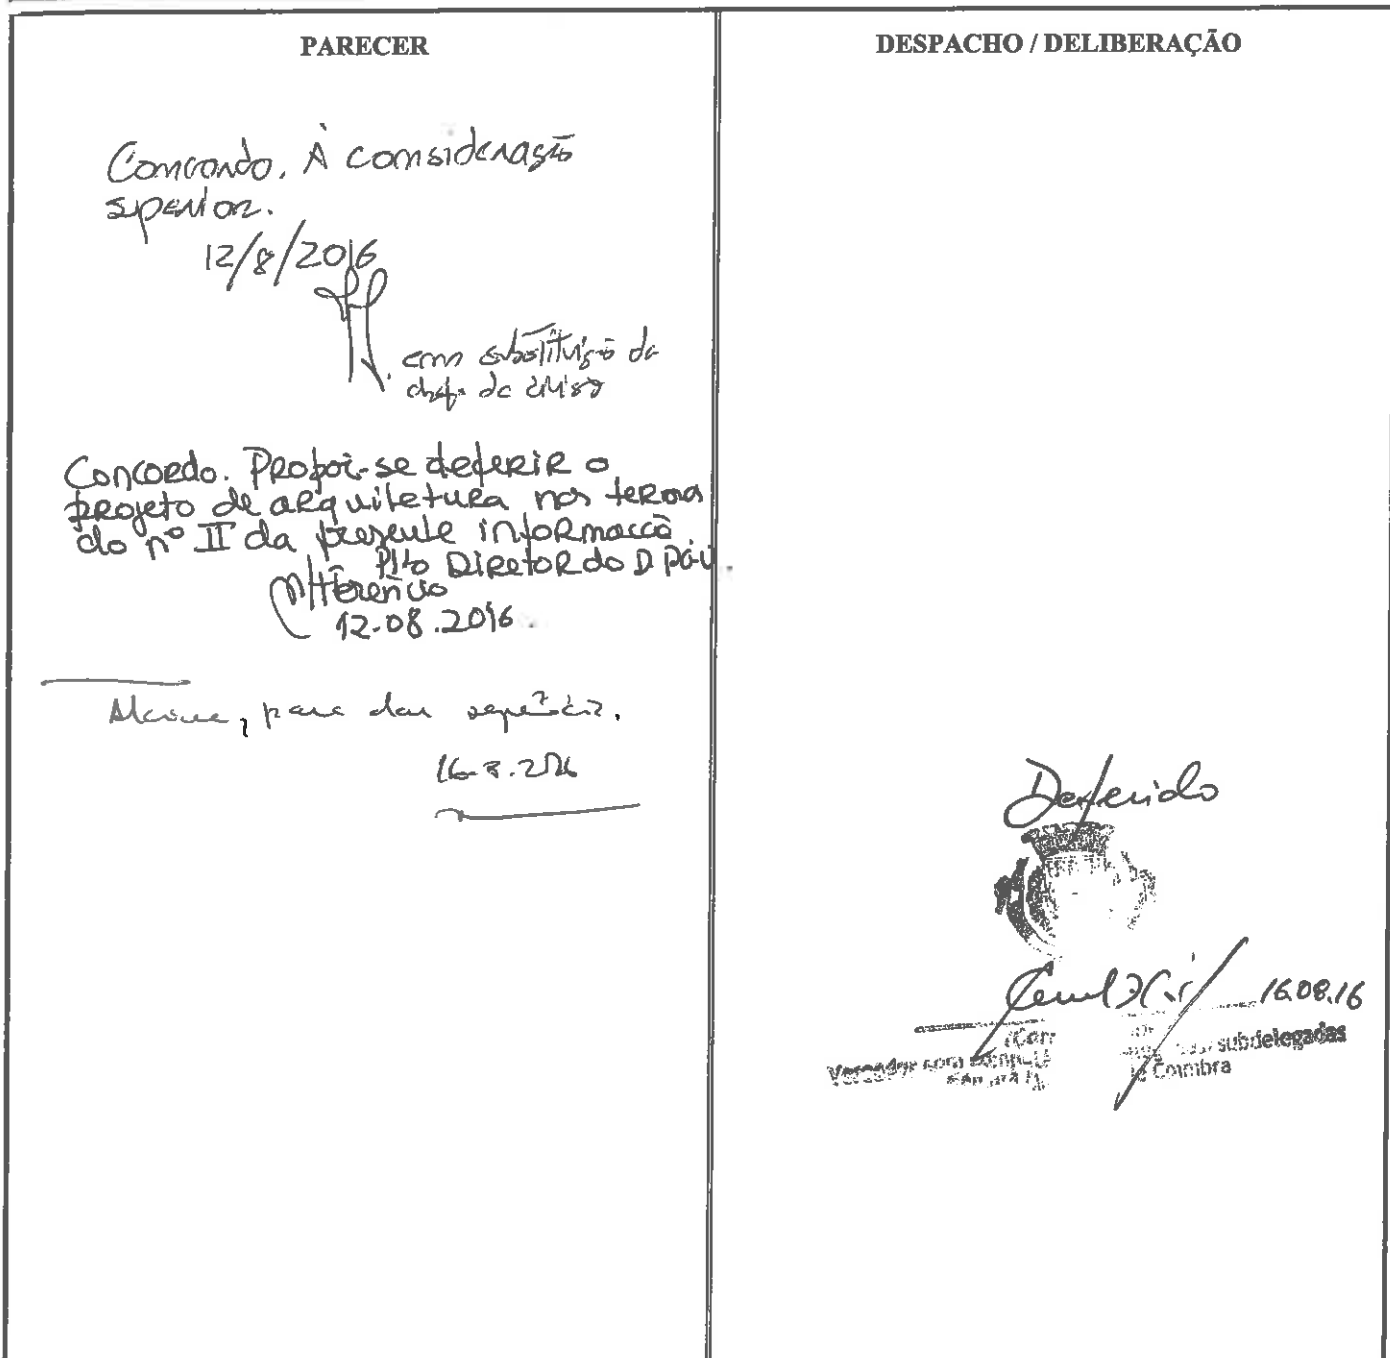 PARECER
Concordo. À consideração
superior.
12/8/2016
em substituição da
chefe de divisão
Concordo. Propõe-se deferir o
projeto de arquitetura nos termos
do nº II da presente informação
Plo Diretor do D
12.08.2016
, para dar sequência.
16.8.2016
DESPACHO / DELIBERAÇÃO
Deferido
16.08.16
subdelegadas
Vereador com
Coimbra